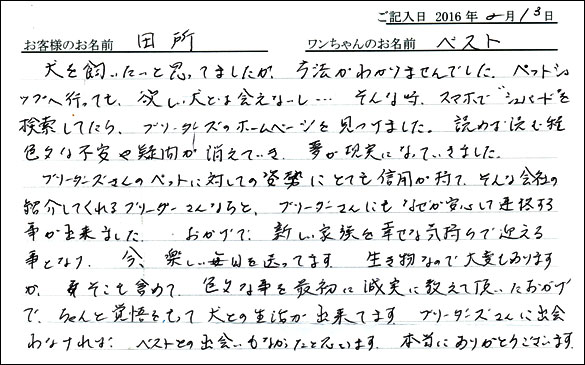 ご記入日 2016年2月13日
お客様のお名前 田所 ワンちゃんのお名前 ベスト
犬を飼いたいと思ってましたが、方法がわかりませんでした。ペットショ
ップへ行っても、欲しい犬とは会えないし… そんな時、スマホで"シェパード"を
検索してたら、ブリーダーズのホームページを見つけました。読めば読む程
色々な不安や疑問が消えていき、夢が現実になっていきました。
ブリーダーズさんのペットに対しての姿勢にとても信用が持て、そんな会社の
紹介してくれるブリーダーさんならと、ブリーダーさんにもなぜか安心して連絡する
事が出来ました。 おかげで、新しい家族を幸せな気持ちで迎える
事となり、今、楽しい毎日を送ってます。 生き物なので大変もあります
が、そこも含めて、色々な事を最初に誠実に教えて頂いたおかげ
で、ちゃんと覚悟をもって犬との生活が出来てます。ブリーダーズさんに出会
わなければ、ベストとの出会いもなかったと思います。本当にありがとうございます。